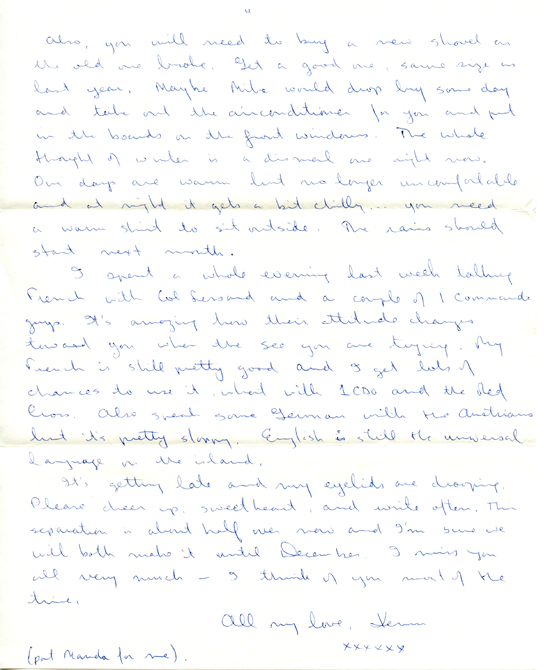 4
Also, you will need to buy a new shovel as
the old one broke. Get a good one, same size as
last year. Maybe Mike would drop by some day
and take out the airconditioner for you and put
in the boards on the front windows. The whole
thought of winter is a dismal one right now.
Our days are warm but no longer uncomfortable
and at night it gets a bit chilly... you need
a warm shirt to sit outside. The rains should
start next month.
I spent a whole evening last week talking
French with Col and a couple of 1 Commando
guys. It's amazing how their attitude changes
toward you when the see you are trying. My
French is still pretty good and I get lots of
chances to use it, what with 1CDO and the Red
Cross. Also speak some German with the Austrians
but it's pretty sloppy. English is still the universal
language on the island.
It's getting late and my eyelids are drooping.
Please cheer up, sweetheart, and write often. This
separation is about half over now and I'm sure we
will both make it until December. I miss you
all very much – I think of you most of the
time.
All my love,
xxxxxx
(pat for me).